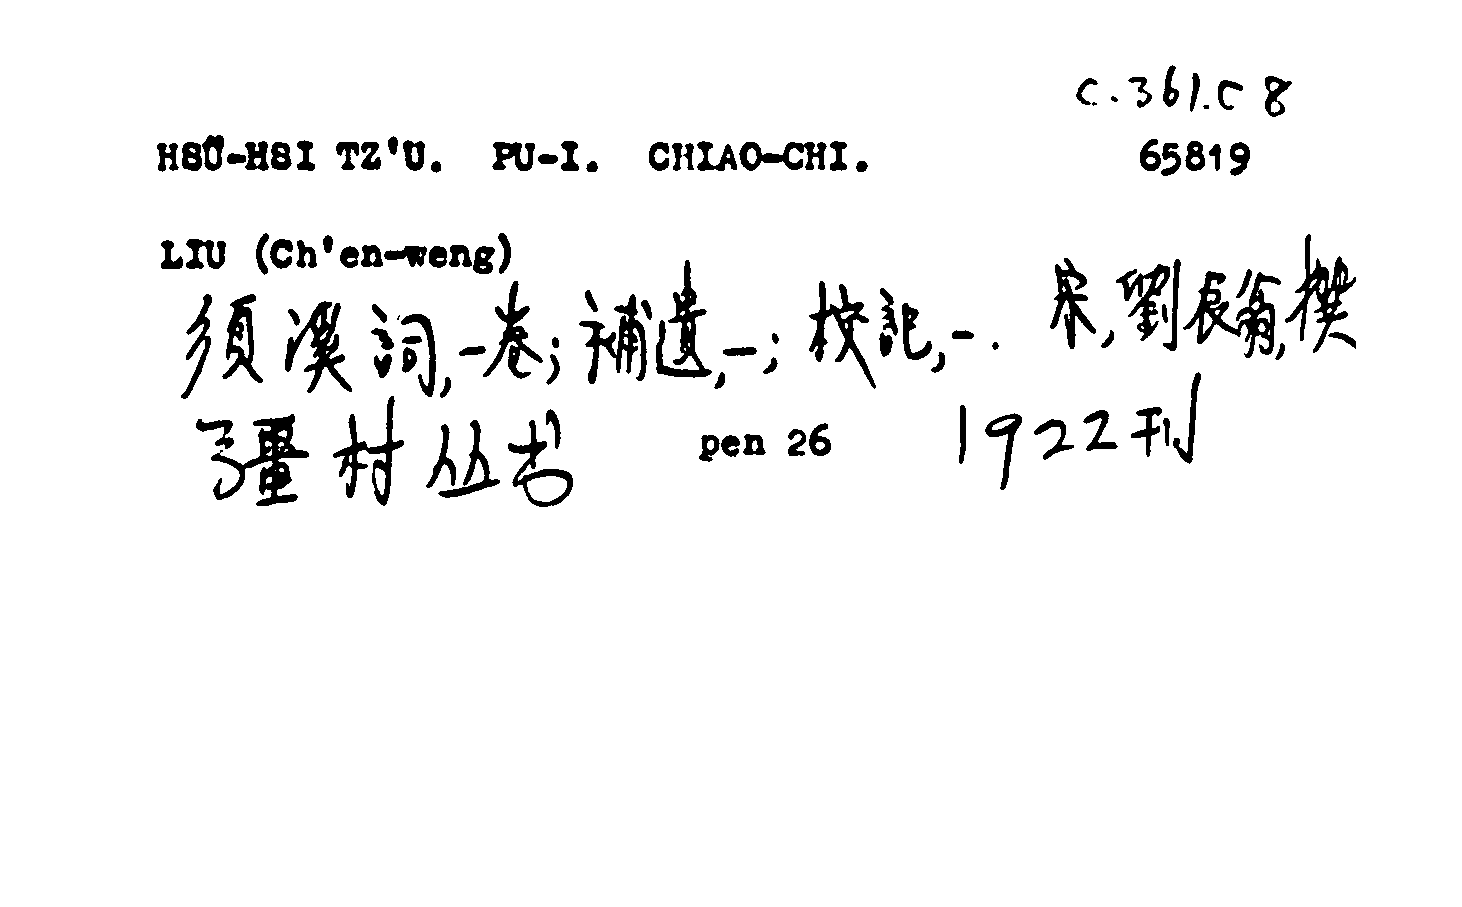 C.361.C 8
HSÜ-HSI TZ'U. PU-I. CHIAO-CHI. 65819
LIU (Ch'en-weng)
須溪詞,一卷;補遺,一;校記,一. 宋,劉辰翁,撰
彊村丛书 pen 26 1922刊